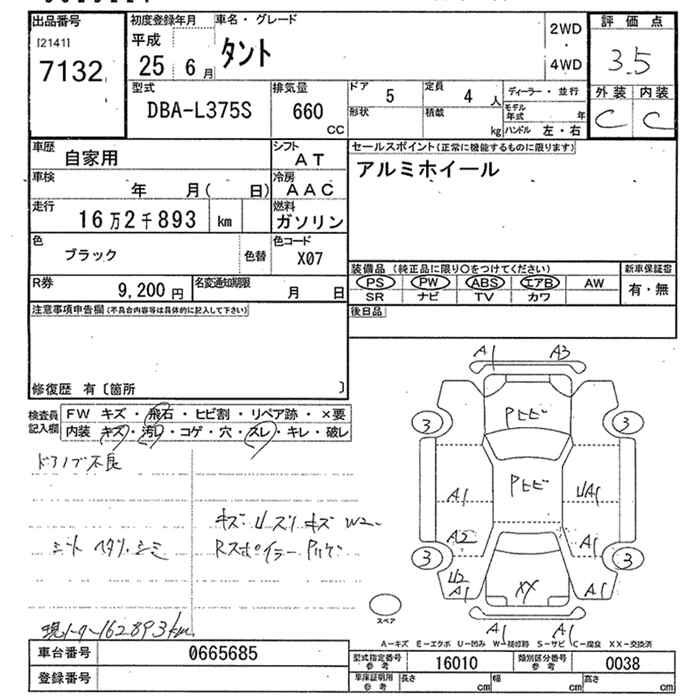 出品番号
[2141]
7132
初度登録年月
平成
25 6月
車名・グレード
タント
2WD
4WD
評価点
3.5
外装 内装
C C
型式
DBA-L375S
排気量
660
CC
ドア 5
定員 4 人
形状
積載 kg
ディーラー・並行
モデル年式 年
ハンドル 左・右
車歴 自家用
シフト AT
車検 年 月( 日)
冷房 AAC
走行 16万2千893 km
燃料 ガソリン
色 ブラック 色替
色コード X07
セールスポイント(正常に機能するものに限ります)
アルミホイール
装備品 (純正品に限り○をつけてください)
PS PW ABS エアB AW
SR ナビ TV カワ
新車保証書
有・無
R券 9,200円
名変通知期限 月 日
後日品
注意事項申告欄(不具合内容等は具体的に記入して下さい)
修復歴 有〔箇所 〕
検査員記入欄
FW キズ・飛石・ヒビ割・リペア跡・×要
内装 キズ・汚レ・コゲ・穴・スレ・キレ・破レ
ドアノブ不良
キズ Uズリキズ W2
シート ヘタリ・シミ
Rスポイラー Pハゲ
現メーター162893km
A1 A3
3 3
Pヒビ
Pヒビ
A1 UA1
A2 A1
3 3
U2
A1 XX A1
A1 A1
スペア
A-キズ E-エクボ U-凹み W-補修跡 S-サビ C-腐食 XX-交換済
車台番号 0665685
登録番号
型式指定番号 参考 16010
類別区分番号 参考 0038
車庫証明用 参考 長さ cm 幅 cm 高さ cm